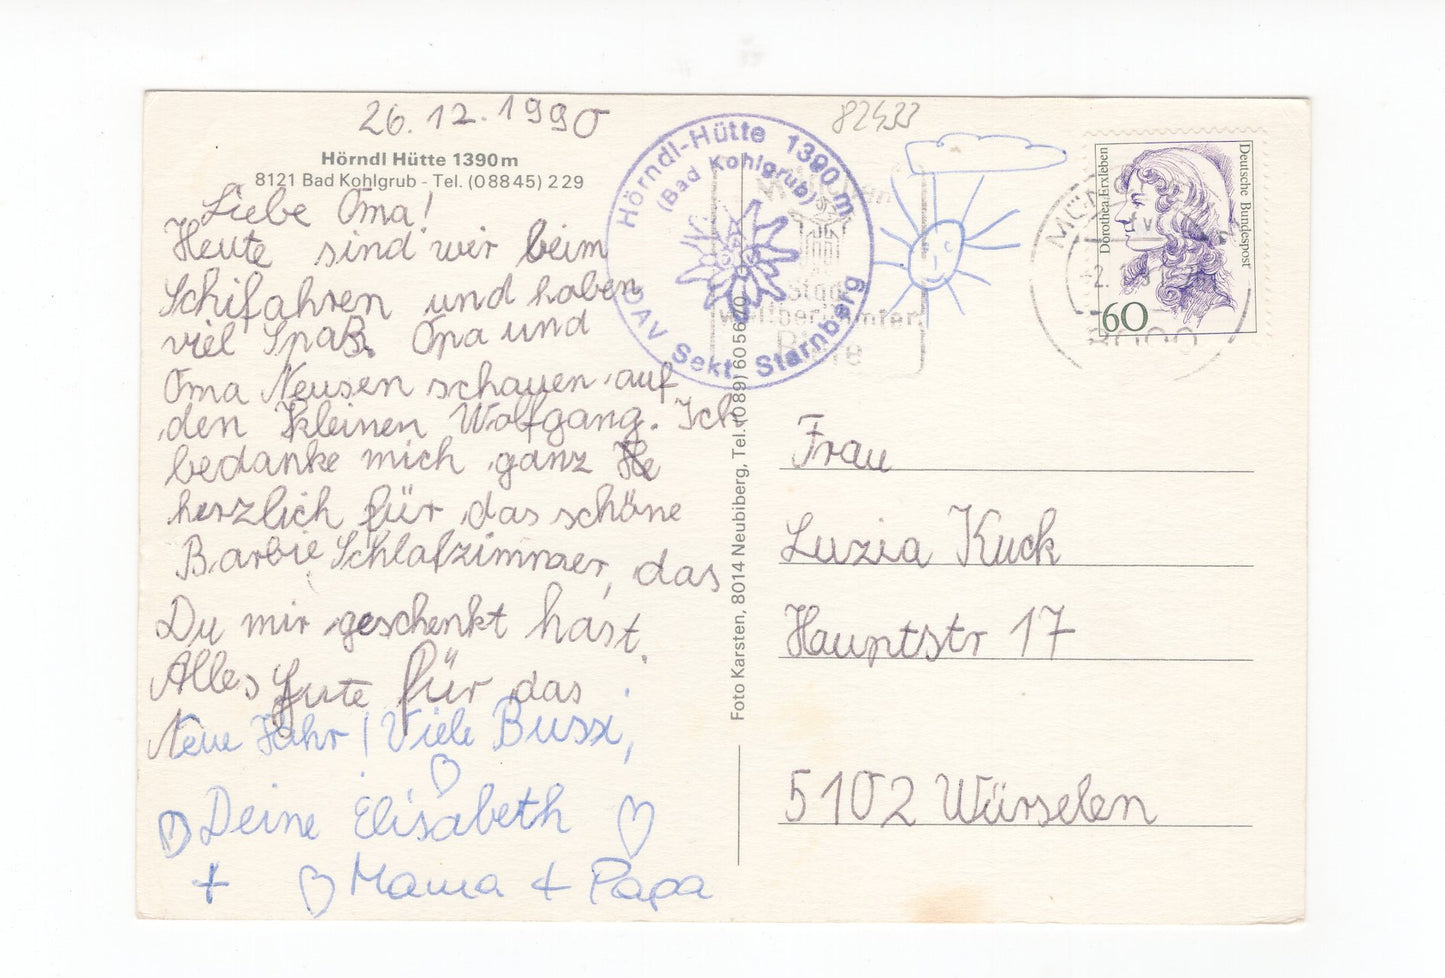 26.12.1990
Hörndl Hütte 1390 m
8121 Bad Kohlgrub - Tel. (08845) 229
Liebe Oma!
Heute sind wir beim
Schifahren und haben
viel Spaß. Opa und
Oma Neusen schauen auf
den kleinen Wolfgang. Ich
bedanke mich ganz He
herzlich für das schöne
Barbie Schlafzimmer, das
Du mir geschenkt hast.
Alles Gute für das
Neue Jahr! Viele Bussi,
Deine Elisabeth
+ Mama + Papa
Foto Karsten, 8014 Neubiberg, Tel. (089) 605670
82433
Hörndl-Hütte 1390 m
(Bad Kohlgrub)
DAV Sekt. Starnberg
München
Stadt
weltberühmter
Biere
MÜNCHEN
8000
Dorothea Erxleben
Deutsche Bundespost
60
Frau
Luzia Kuck
Hauptstr 17
5102 Würselen